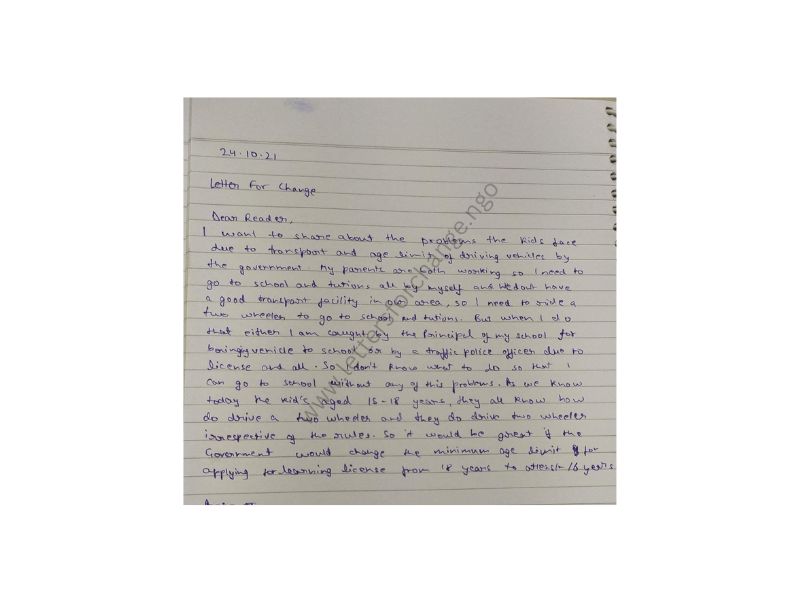 24.10.21
Letter For Change
Dear Reader,
I want to share about the problems the kids face
due to transport and age limit of driving vehicles by
the government. My parents are both working so I need to
go to school and tutions all by myself and we dont have
a good transport facility in our area, so I need to ride a
two wheeler to go to school and tutions. But when I do
that either I am caught by the Principal of my school for
vehicle to school or by a traffic police officer due to
license and all. So I don't know what to do so that I
can go to school without any of this problems. As we know
today the kid's aged 15-18 years, they all know how
do drive a two wheeler and they do drive two wheeler
irrespective of the rules. So it would be great if the
Government would change the minimum age limit for
applying for learning license from 18 years to 16 years
www.lettersforchange.ngo